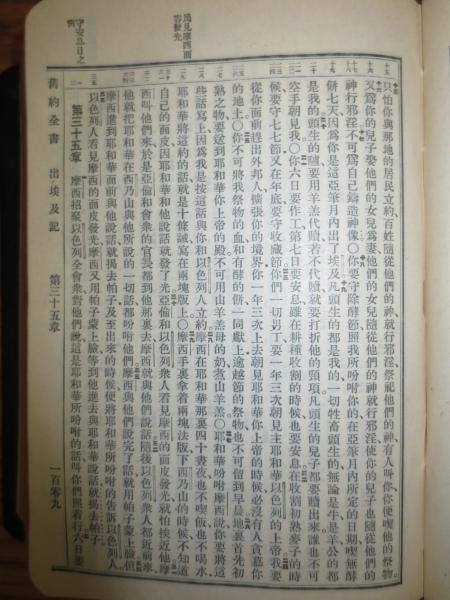 只怕你與那地的居民立約百姓隨從他們的神就行邪淫祭祀他們的神有人叫你你便喫他的祭物
又爲你的兒子娶他們的女兒爲妻他們的女兒隨從他們的神就行邪淫使你的兒子也隨從他們的
神行邪淫不可爲自己鑄造神像○你要守除酵節照我所吩咐你的在亞筆月內所定的日期喫無酵
餅七天因爲你是這亞筆月內出了埃及凡頭生的都是我的一切牲畜頭生的無論是牛是羊公的都
是我的頭生的驢要用羊羔代贖若不代贖就要打折他的頸項凡頭生的兒子都要贖出來誰也不可
空手朝見我○你六日要作工第七日要安息雖在耕種收割的時候也要安息在收割初熟麥子的時
候要守七七節又在年底要守收藏節你們一切男丁要一年三次朝見主耶和華以色列的上帝我要
從你面前趕出外邦人擴張你的境界你一年三次上去朝見耶和華你上帝的時候必沒有人貪慕你
的地土○你不可將我祭物的血和有酵的餅一同獻上逾越節的祭物也不可留到早晨地裏首先初
熟之物要送到耶和華你上帝的殿不可用山羊羔母的奶煮山羊羔○耶和華吩咐摩西說你要將這
些話寫上因爲我是按這話與你和以色列人立約摩西在耶和華那裏四十晝夜也不喫飯也不喝水
耶和華將這約的話就是十條誡寫在兩塊版上○摩西手裏拿着兩塊法版下西乃山的時候不知道
自己的面皮因耶和華和他說話就發了光亞倫和以色列衆人看見摩西的面皮發光就怕挨近他摩
西叫他們來於是亞倫和會衆的官長都到他那裏去摩西就與他們說話隨後以色列衆人都近前來
他就把耶和華在西乃山與他所說的一切話都吩咐他們摩西與他們說完了話就用帕子蒙上臉但
摩西進到耶和華面前與他說話就揭去帕子及至出來的時候便將耶和華所吩咐的告訴以色列人
以色列人看見摩西的面皮發光摩西又用帕子蒙上臉等到他進去與耶和華說話就揭去帕子
第三十五章 摩西招聚以色列全會衆對他們說這是耶和華所吩咐的話叫你們照着行六日要
舊約全書 出埃及記 第三十五章 一百零九
民見摩西面
容發光
守安息日之